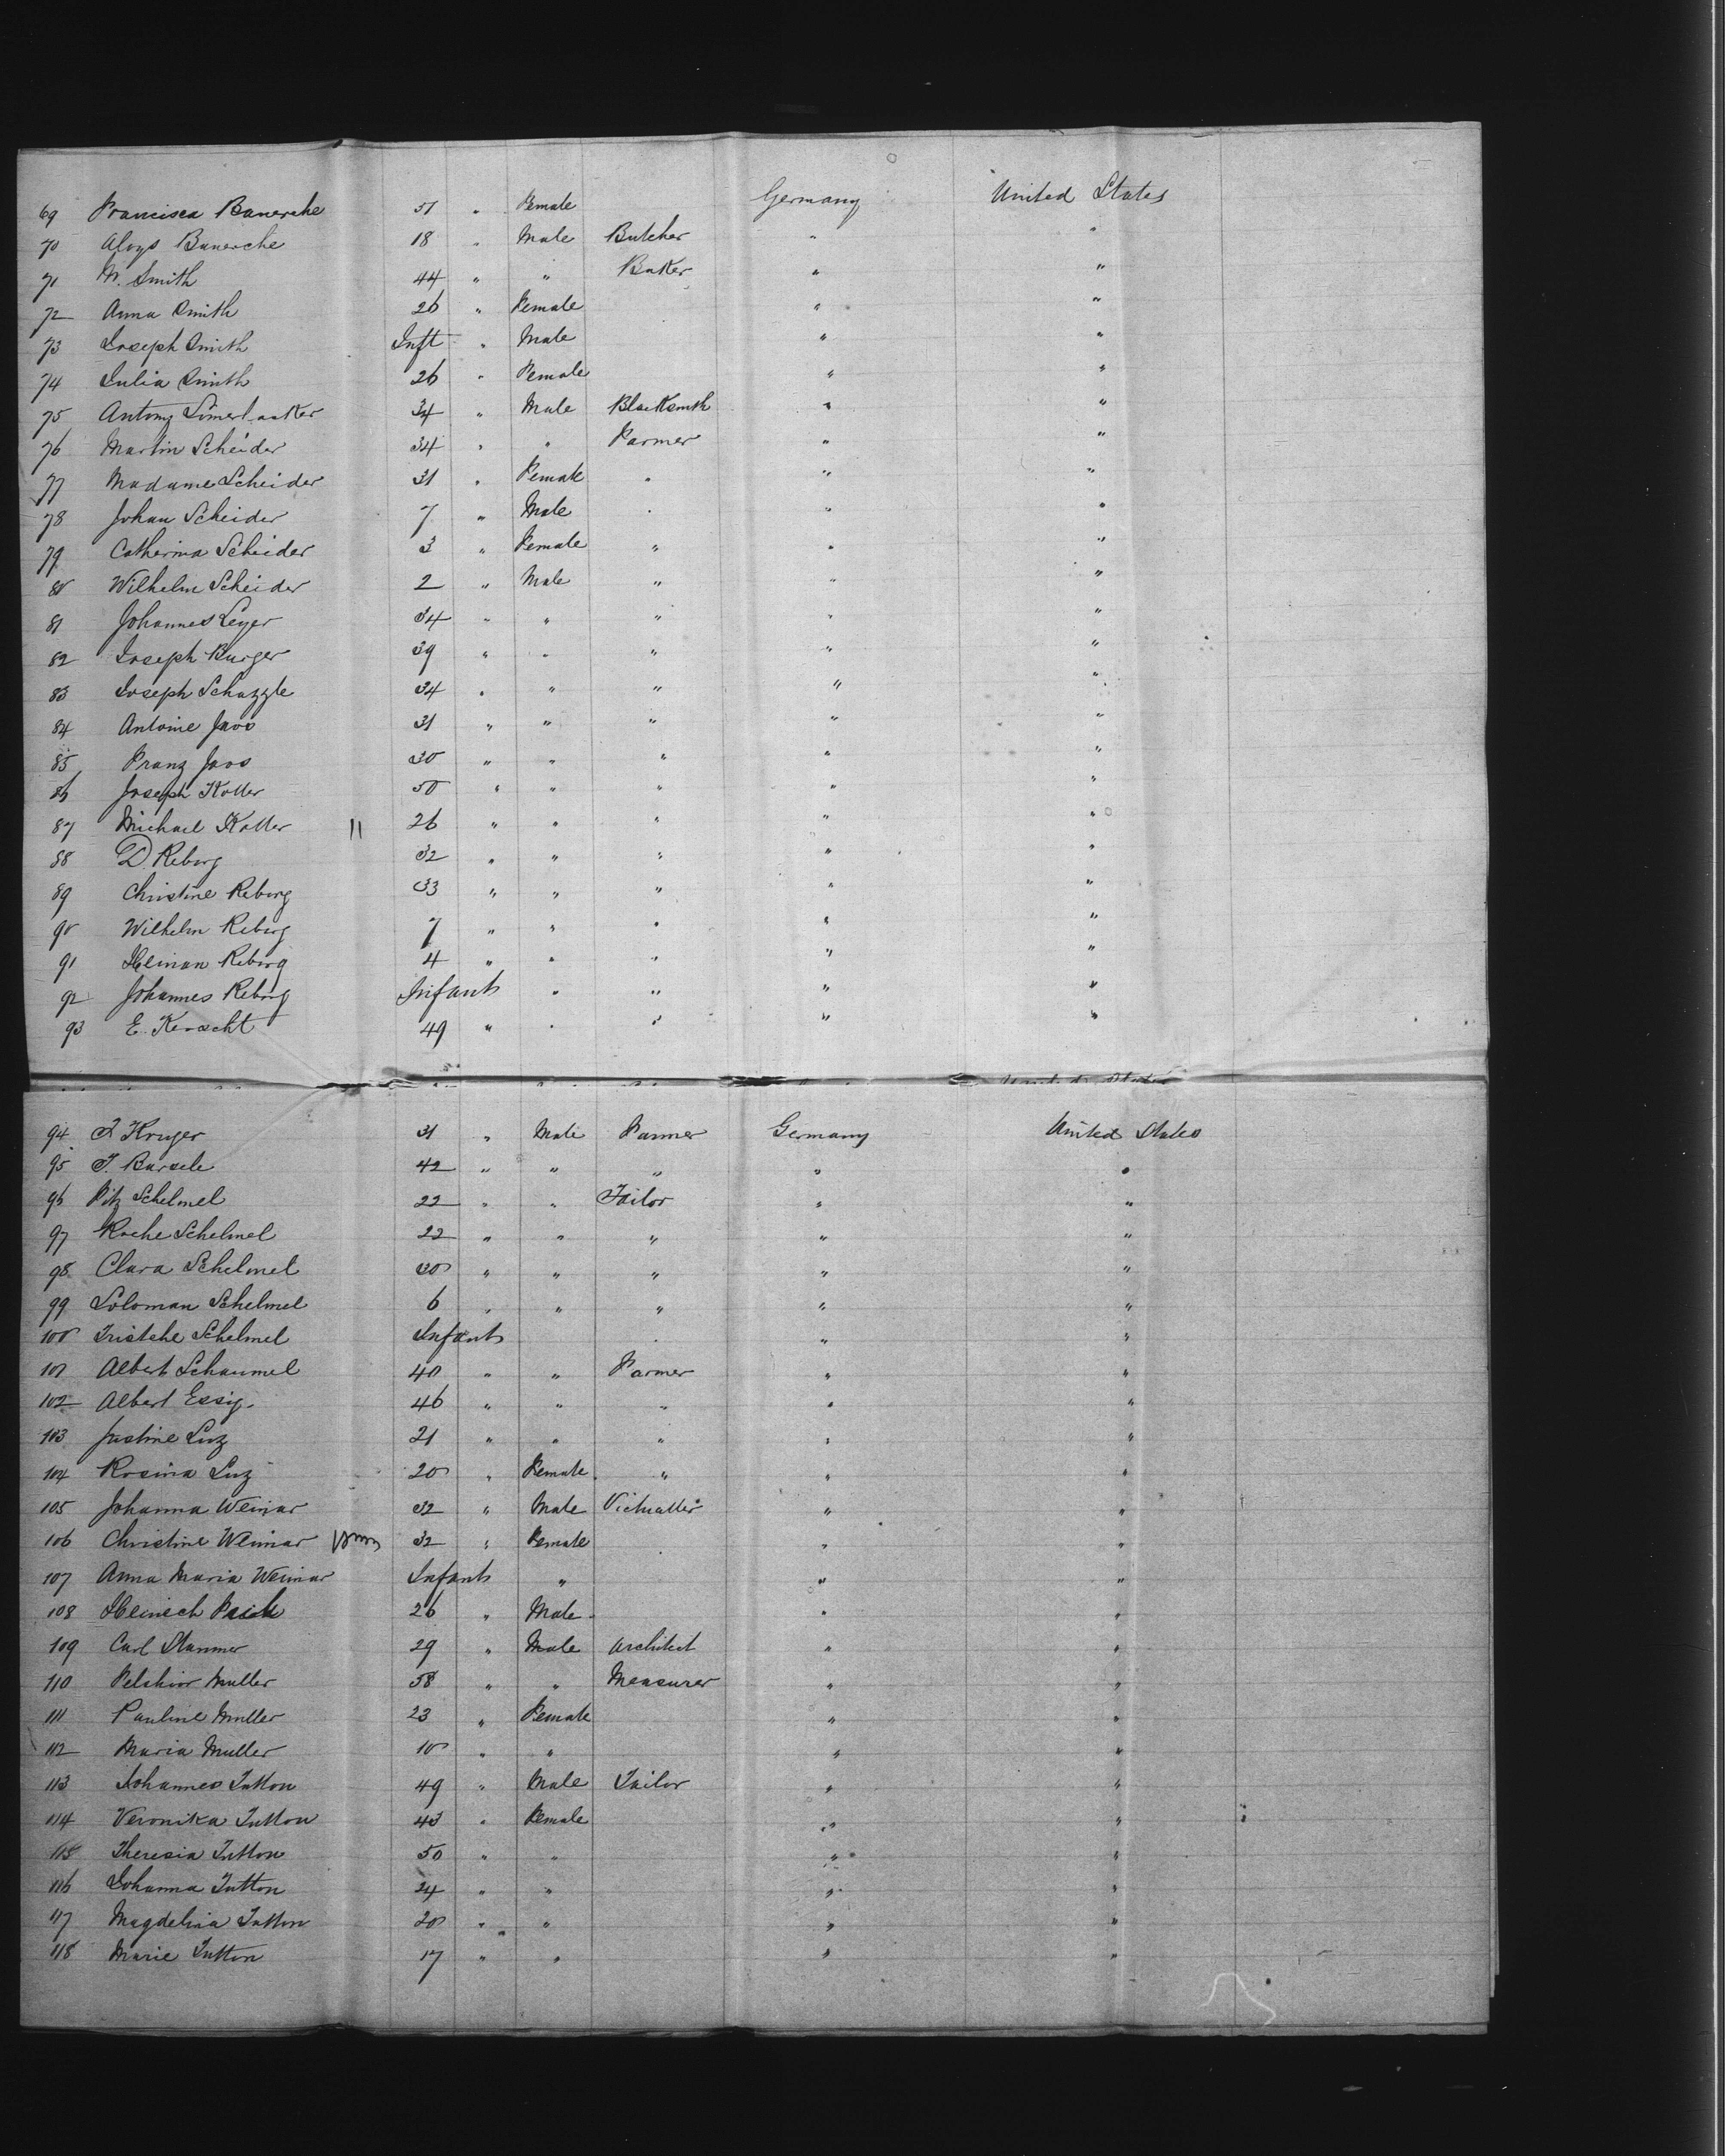 69 Francisca Banerche 51 " Female Germany United States
70 Aloys Banerche 18 " Male Butcher " "
71 M. Smith 44 " " Baker " "
72 Anna Smith 26 " Female " "
73 Joseph Smith Inft " Male " "
74 Julia Smith 26 " Female " "
75 Antony 34 " Male Blacksmth " "
76 Martin Scheider 34 " " Farmer " "
77 Madame Scheider 31 " Female " " "
78 Johan Scheider 7 " Male " " "
79 Catherina Scheider 3 " Female " " "
80 Wilhelm Scheider 2 " Male " " "
81 Johannes Leyer 34 " " " " "
82 Joseph Burger 39 " " " " "
83 Joseph Schazzle 34 " " " " "
84 Antoine Jaos 31 " " " " "
85 Franz Jaos 30 " " " " "
86 Joseph Koller 50 " " " " "
87 Michael Koller 11 26 " " " " "
88 D. Reborg 32 " " " " "
89 Christine Reborg 33 " " " " "
90 Wilhelm Reborg 7 " " " " "
91 Heinan Reborg 4 " " " " "
92 Johannes Reborg Infant " " " "
93 E. Keracht 49 " " " " "
94 Kruger 31 " Male Farmer Germany United States
95 Barsele 42 " " " " "
96 Fitz Schelmel 22 " " Tailor " "
97 Roche Schelmel 22 " " " " "
98 Clara Schelmel 30 " " " " "
99 Soloman Schelmel 6 " " " " "
100 Tristche Schelmel Infant " " "
101 Albert Schaumel 40 " " Farmer " "
102 Albert Essig 46 " " " " "
103 Justine Luz 21 " " " " "
104 Rosina Luz 20 " Female " " "
105 Johanna Weimar 32 " Male Victualler " "
106 Christine Weimar 32 " Female " "
107 Anna Maria Weimar Infant " " "
108 Heinech 26 " Male " "
109 Carl Stammer 29 " Male Architect " "
110 Pelchior Muller 58 " " Measurer " "
111 Pauline Muller 23 " Female " "
112 Maria Muller 10 " " " "
113 Johannes Tutton 49 " Male Tailor " "
114 Veronika Tutton 43 " Female " "
115 Theresia Tutton 50 " " " "
116 Johanna Tutton 24 " " " "
117 Magdelina Tutton 20 " " " "
118 Marie Tutton 17 " " " "